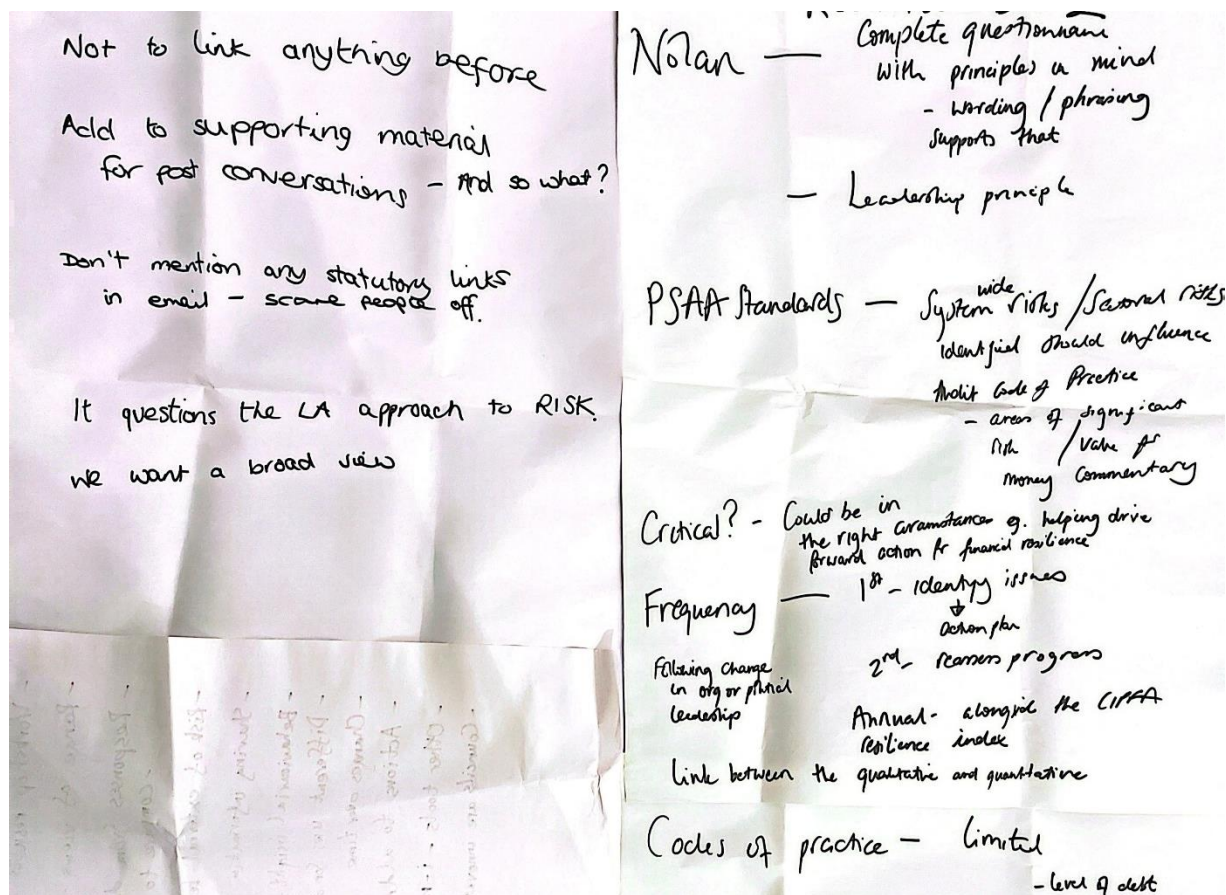 Not to link anything before
Add to supporting material
for post conversations - And so what?
Don't mention any statutory links
in email - scare people off.
It questions the LA approach to RISK.
We want a broad view
Nolan — Complete questionnaire
with principles in mind
- wording / phrasing
supports that
— Leadership principle
PSAA Standards — System wide risks / Several risks
identified should influence
Audit Code of Practice
- areas of significant
risk / value for
money commentary
Critical? - Could be in
the right circumstances eg. helping drive
forward action for financial resilience
Frequency — 1st - identify issues
↓
action plan
2nd - reassess progress
Following change
in org or political
leadership
Annual - alongside the CIPFA
resilience index
Link between the qualitative and quantitative
Codes of practice - limited
- level of debt